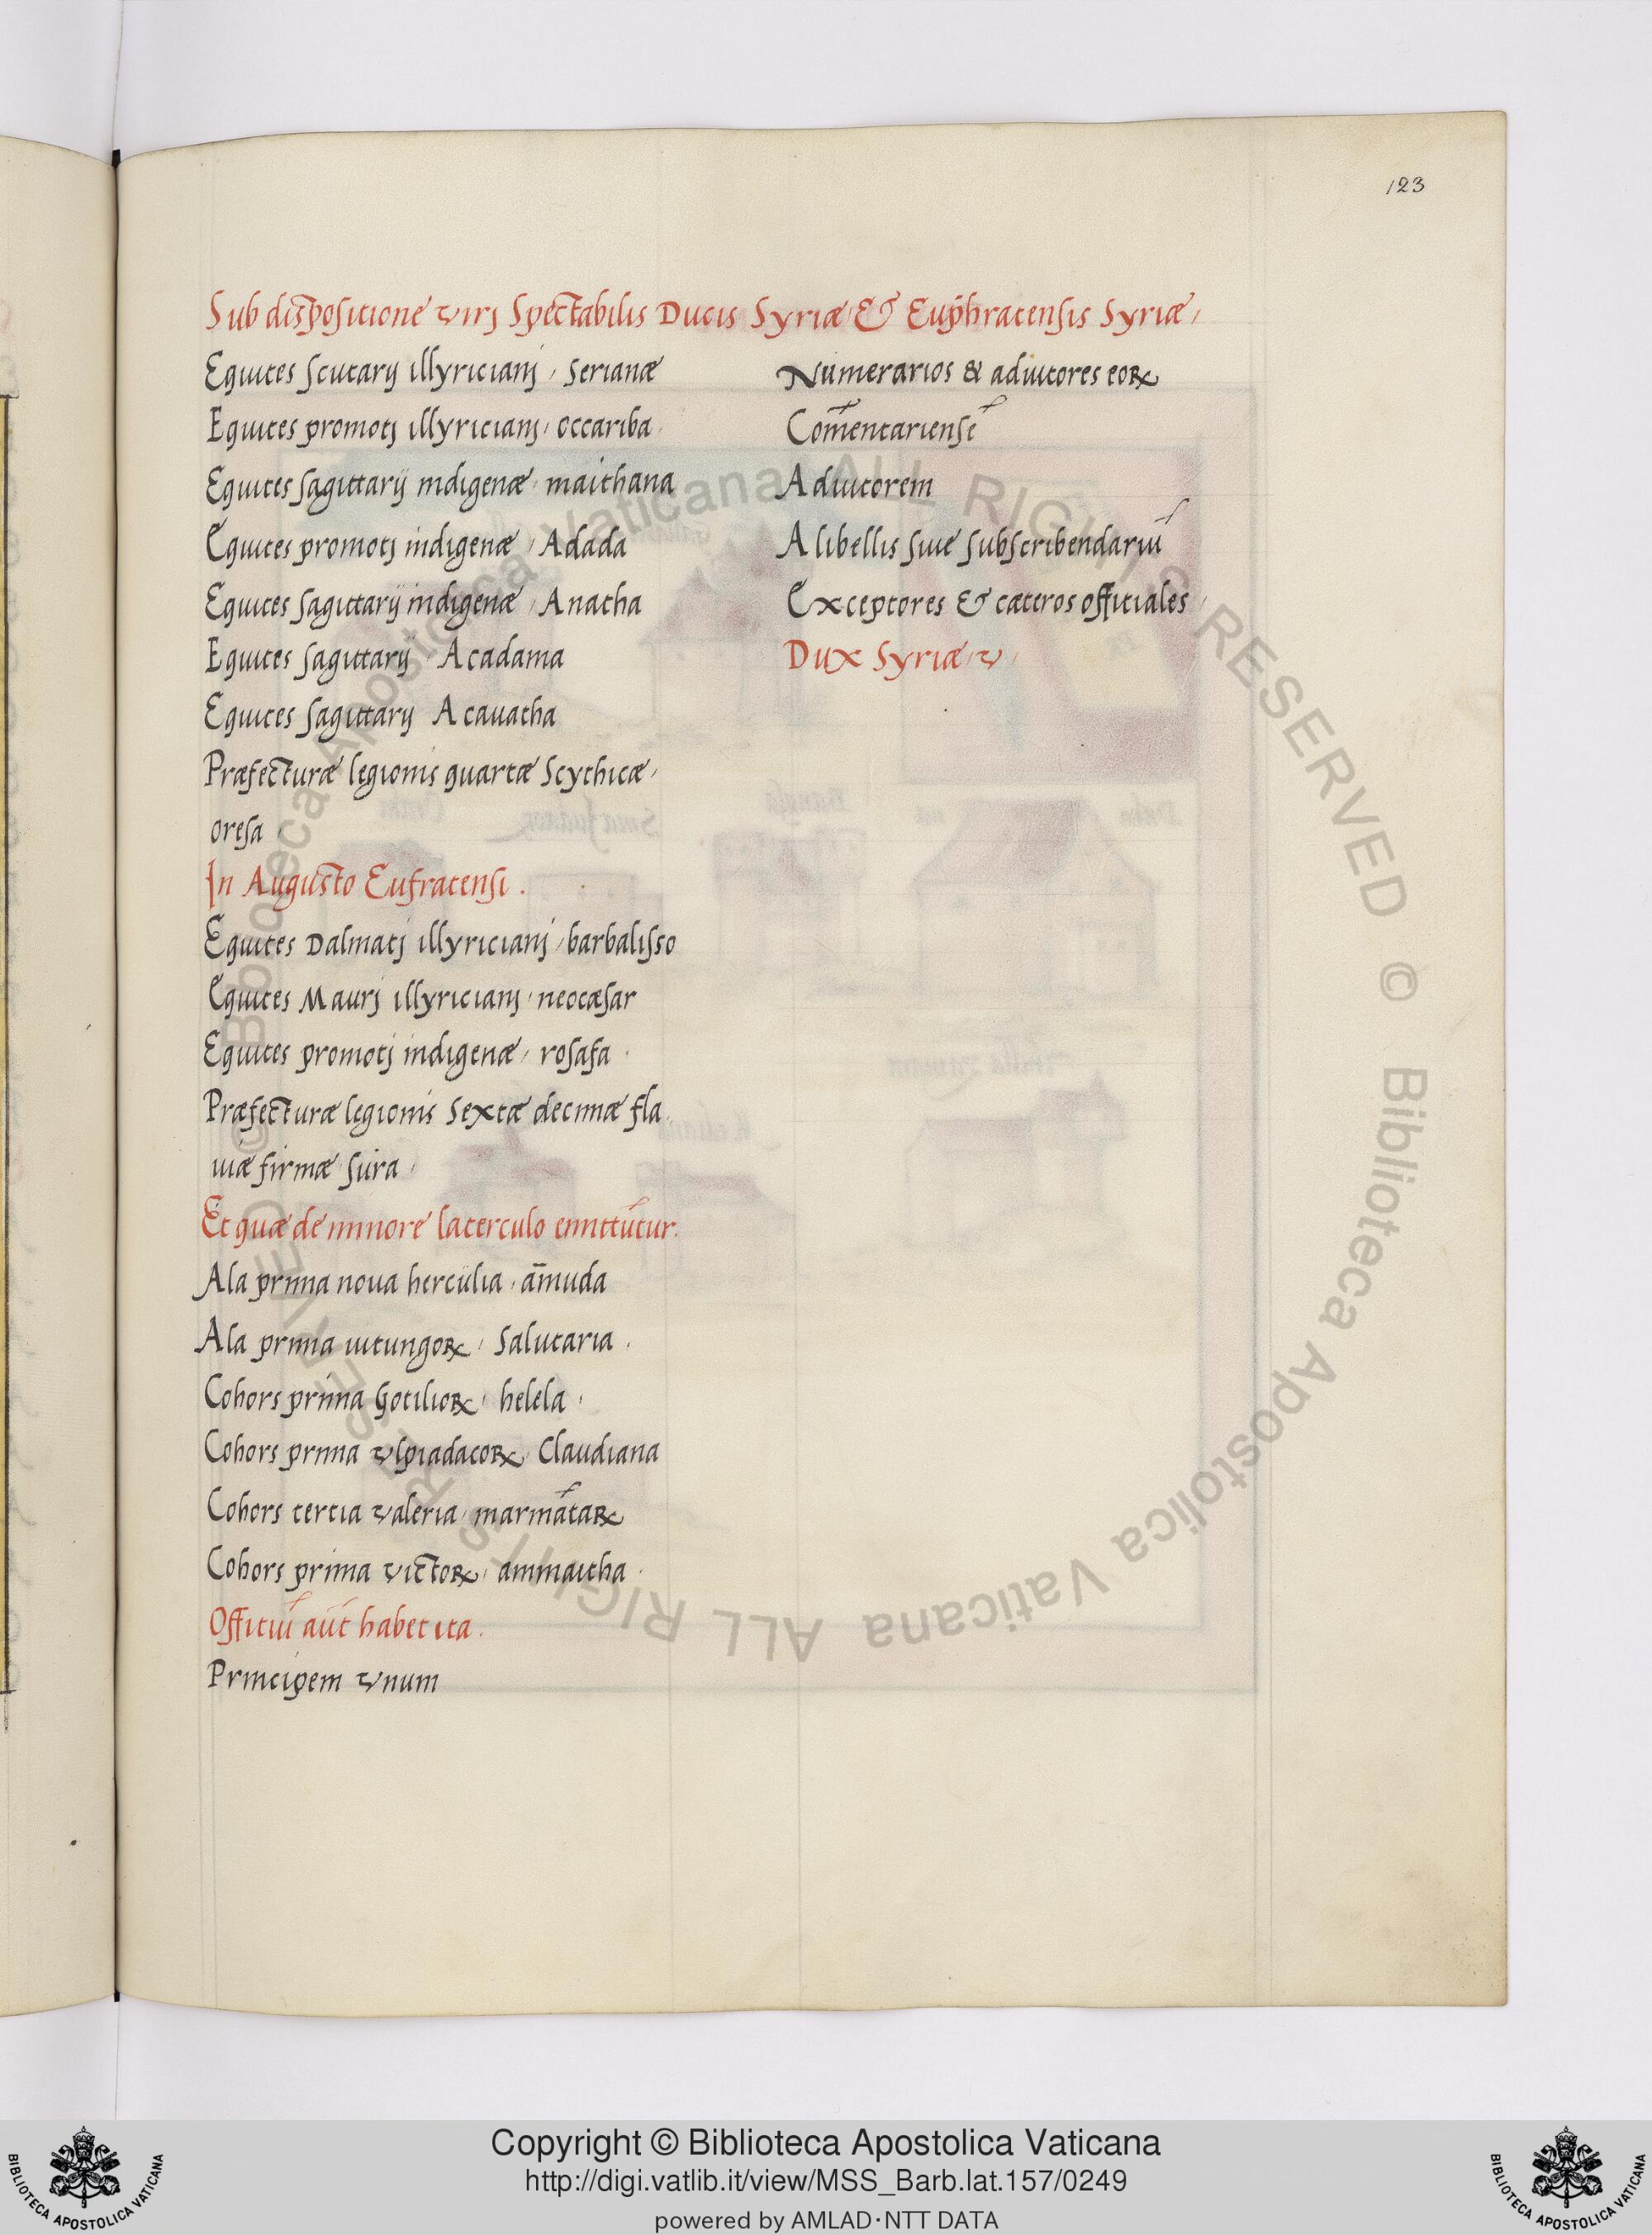 123
Sub dispositione virj Spectabilis Ducis Syriæ & Euphratensis Syriæ,
Equites scutarij illyricianj, serianæ
Equites promotj illyricianj, occariba.
Equites sagittarij indigenæ, maithana
Equites promotj indigenæ, Adada
Equites sagittarij indigenæ, Anatha
Equites sagittarij, Acadama
Equites sagittarij Acauatha
Præfecturæ legionis quartæ Scythicæ,
oresa
In Augusto Eufratensi.
Equites Dalmatj illyricianj, barbalisso
Equites Maurj illyricianj, neocæsar
Equites promotj indigenæ, rosafa.
Præfecturæ legionis sextæ decimæ fla
uiæ firmæ sura,
Et quæ de minore laterculo emittūtur.
Ala prima noua herculia, am̄uda
Ala prima iutungoꝝ, salutaria.
Cohors prima Gotilioꝝ, helela,
Cohors prima vlpiadacoꝝ, Claudiana
Cohors tertia valeria, marmātaꝝ
Cohors prima victoꝝ, ammaitha.
Offitiū aūt habet ita.
Principem vnum
Numerarios & adiutores eoꝝ
Com̄entariensē
Adiutorem
A libellis siue subscribendariū
Exceptores & cæteros offitiales,
Dux Syriæ, v,
© Biblioteca Apostolica Vaticana ALL RIGHTS RESERVED © Biblioteca Apostolica Vaticana ALL RIGHTS RESERVED
Copyright © Biblioteca Apostolica Vaticana
http://digi.vatlib.it/view/MSS_Barb.lat.157/0249
powered by AMLAD·NTT DATA
BIBLIOTECA APOSTOLICA VATICANA
BIBLIOTECA APOSTOLICA VATICANA